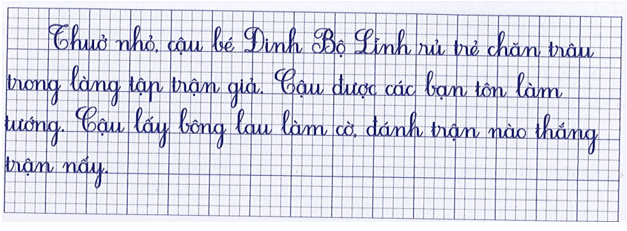 Thuở nhỏ, cậu bé Đinh Bộ Lĩnh rủ trẻ chăn trâu
trong làng tập trận giả. Cậu được các bạn tôn làm
tướng. Cậu lấy bông lau làm cờ, đánh trận nào thắng
trận nấy.